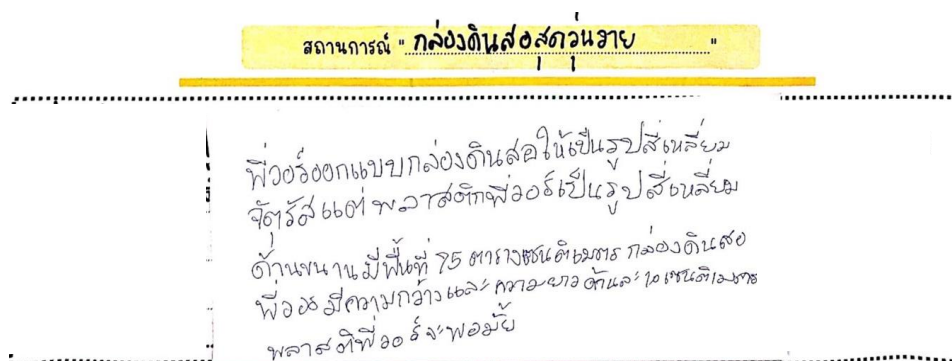 สถานการณ์ " กล่องดินสอสุดวุ่นวาย "
พี่วอร์ออกแบบกล่องดินสอให้เป็นรูปสี่เหลี่ยม
จัตุรัสแต่พลาสติกพี่วอร์เป็นรูปสี่เหลี่ยม
ด้านขนานมีพื้นที่ 75 ตารางเซนติเมตร กล่องดินสอ
พี่วอร์มีความกว้างและความยาวด้านละ 10 เซนติเมตร
พลาสติพี่วอร์จะพอมั้ย